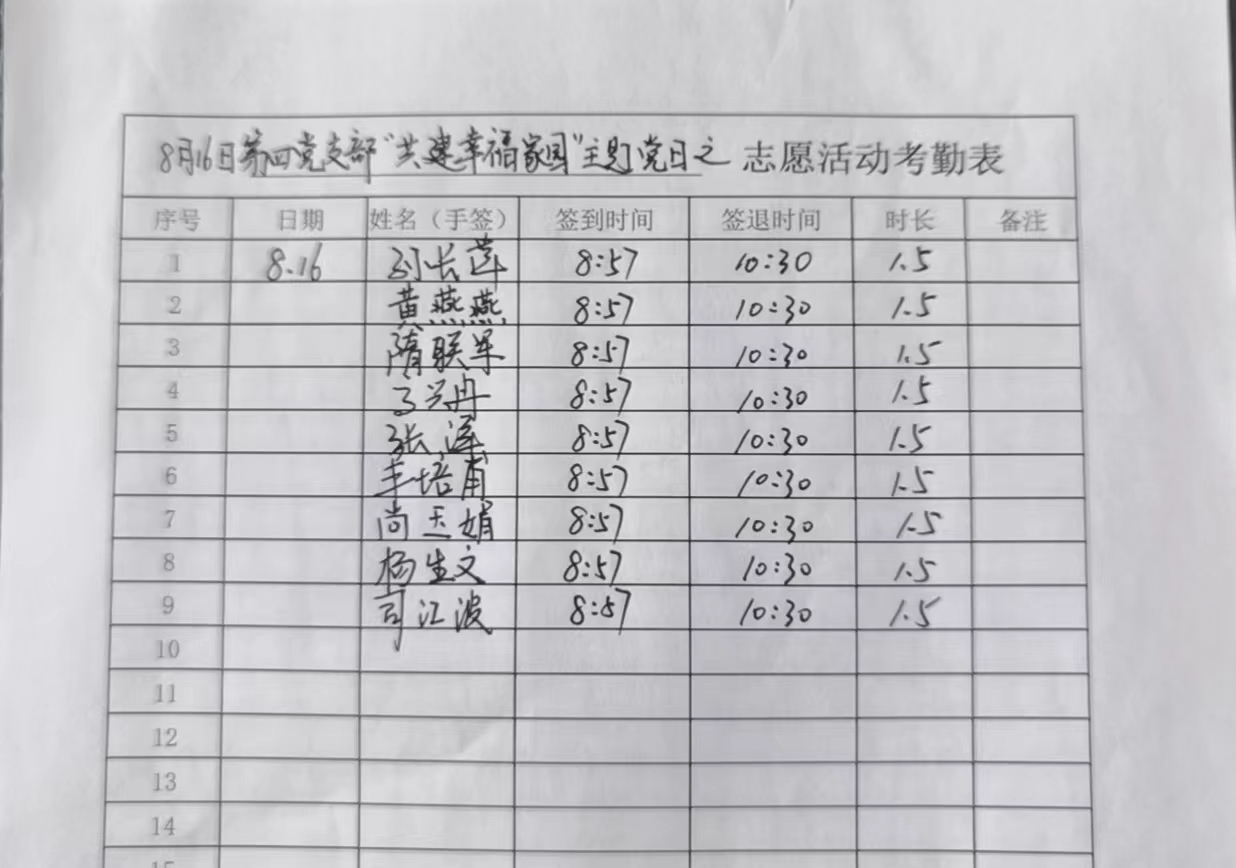 8月16日第四党支部“共建幸福家园”主题党日之 志愿活动考勤表
序号 日期 姓名（手签） 签到时间 签退时间 时长 备注
1 8.16 刘长莲 8:57 10:30 1.5
2 黄燕燕 8:57 10:30 1.5
3 隋联军 8:57 10:30 1.5
4 高兴冉 8:57 10:30 1.5
5 张 8:57 10:30 1.5
6 丰培甫 8:57 10:30 1.5
7 尚玉娟 8:57 10:30 1.5
8 杨生文 8:57 10:30 1.5
9 司江波 8:57 10:30 1.5
10
11
12
13
14